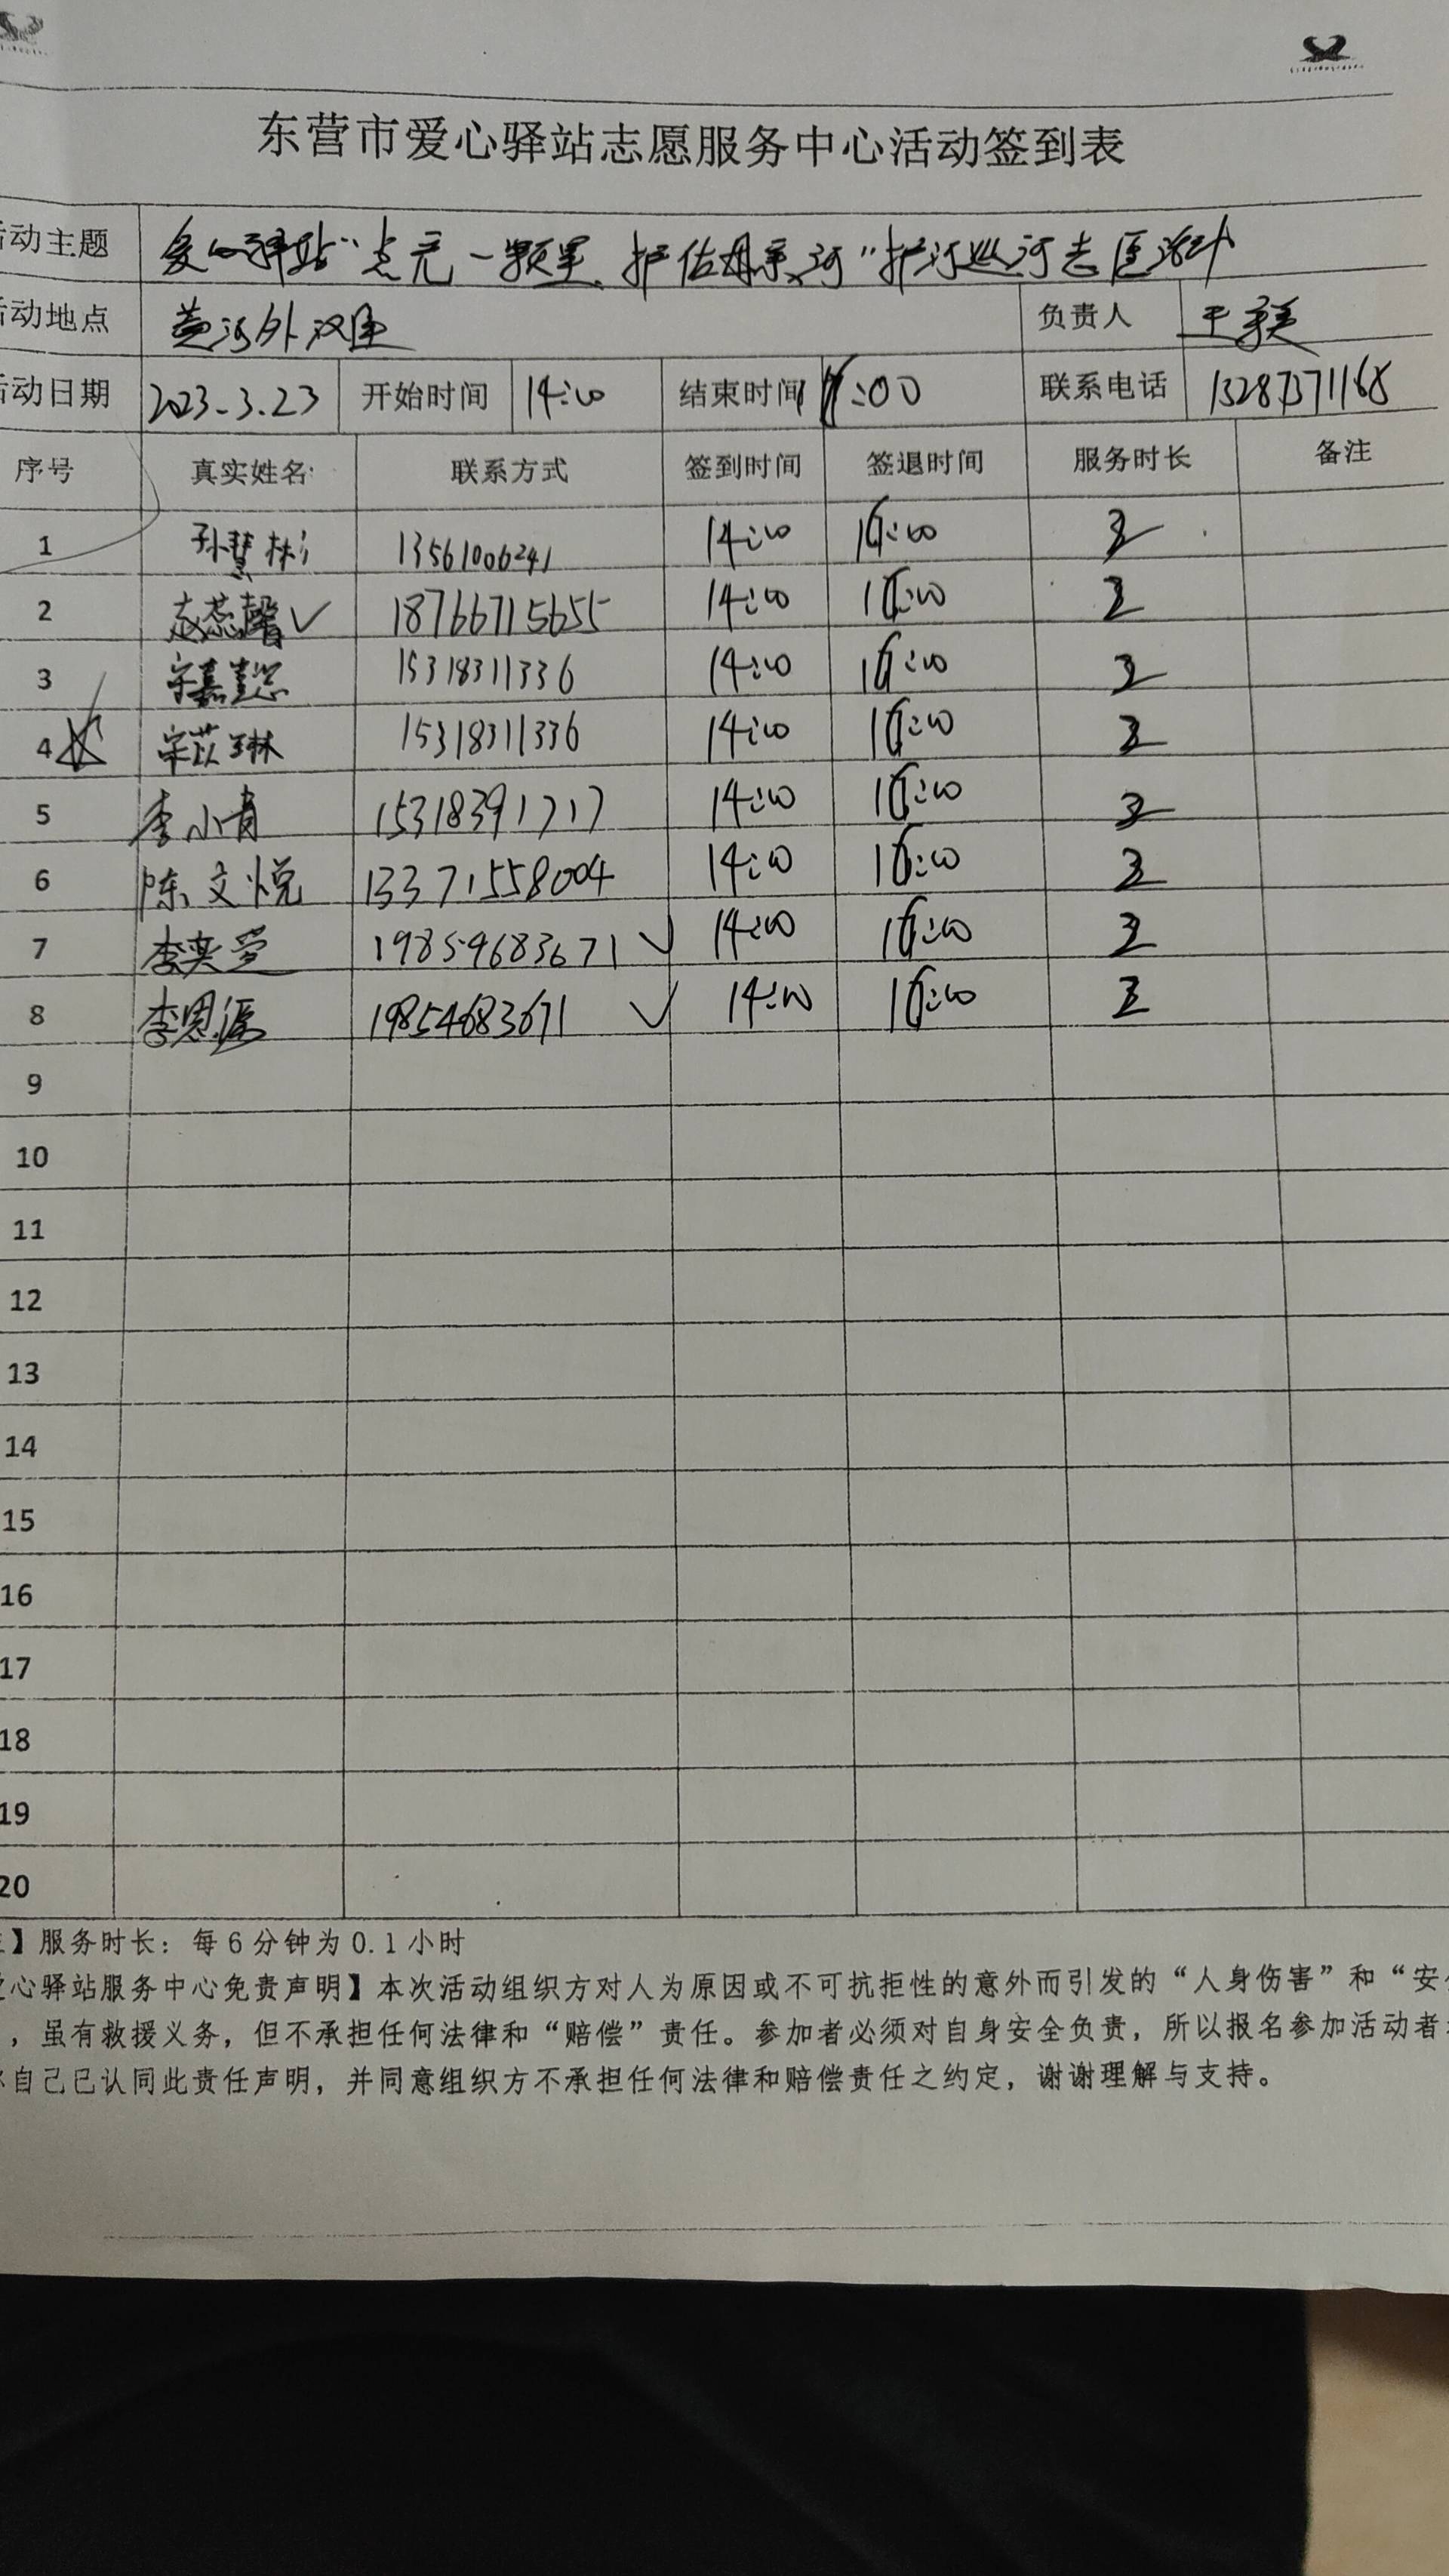 东营市爱心驿站志愿服务中心活动签到表
动主题 爱心驿站“点亮一颗星、护佑母亲河”护河巡河志愿活动
动地点 黄河外 负责人 王
动日期 2023.3.23 开始时间 14:00 结束时间 :00 联系电话 15287371168
序号 真实姓名 联系方式 签到时间 签退时间 服务时长 备注
1 孙慧彬 13561006241 14:00 16:00 2
2 赵蕊馨 ✓ 18766715655 14:00 16:00 2
3 宋嘉懿 15318311336 14:00 16:00 2
4 宋苡琳 15318311336 14:00 16:00 2
5 李小青 15318391717 14:00 16:00 2
6 陈文悦 13371558004 14:00 16:00 2
7 李奕 19859683671 ✓ 14:00 16:00 2
8 李恩源 19854683671 ✓ 14:00 16:00 2
9
10
11
12
13
14
15
16
17
18
19
20
】服务时长：每6分钟为0.1小时
心驿站服务中心免责声明】本次活动组织方对人为原因或不可抗拒性的意外而引发的“人身伤害”和“安
，虽有救援义务，但不承担任何法律和“赔偿”责任。参加者必须对自身安全负责，所以报名参加活动者
自己已认同此责任声明，并同意组织方不承担任何法律和赔偿责任之约定，谢谢理解与支持。